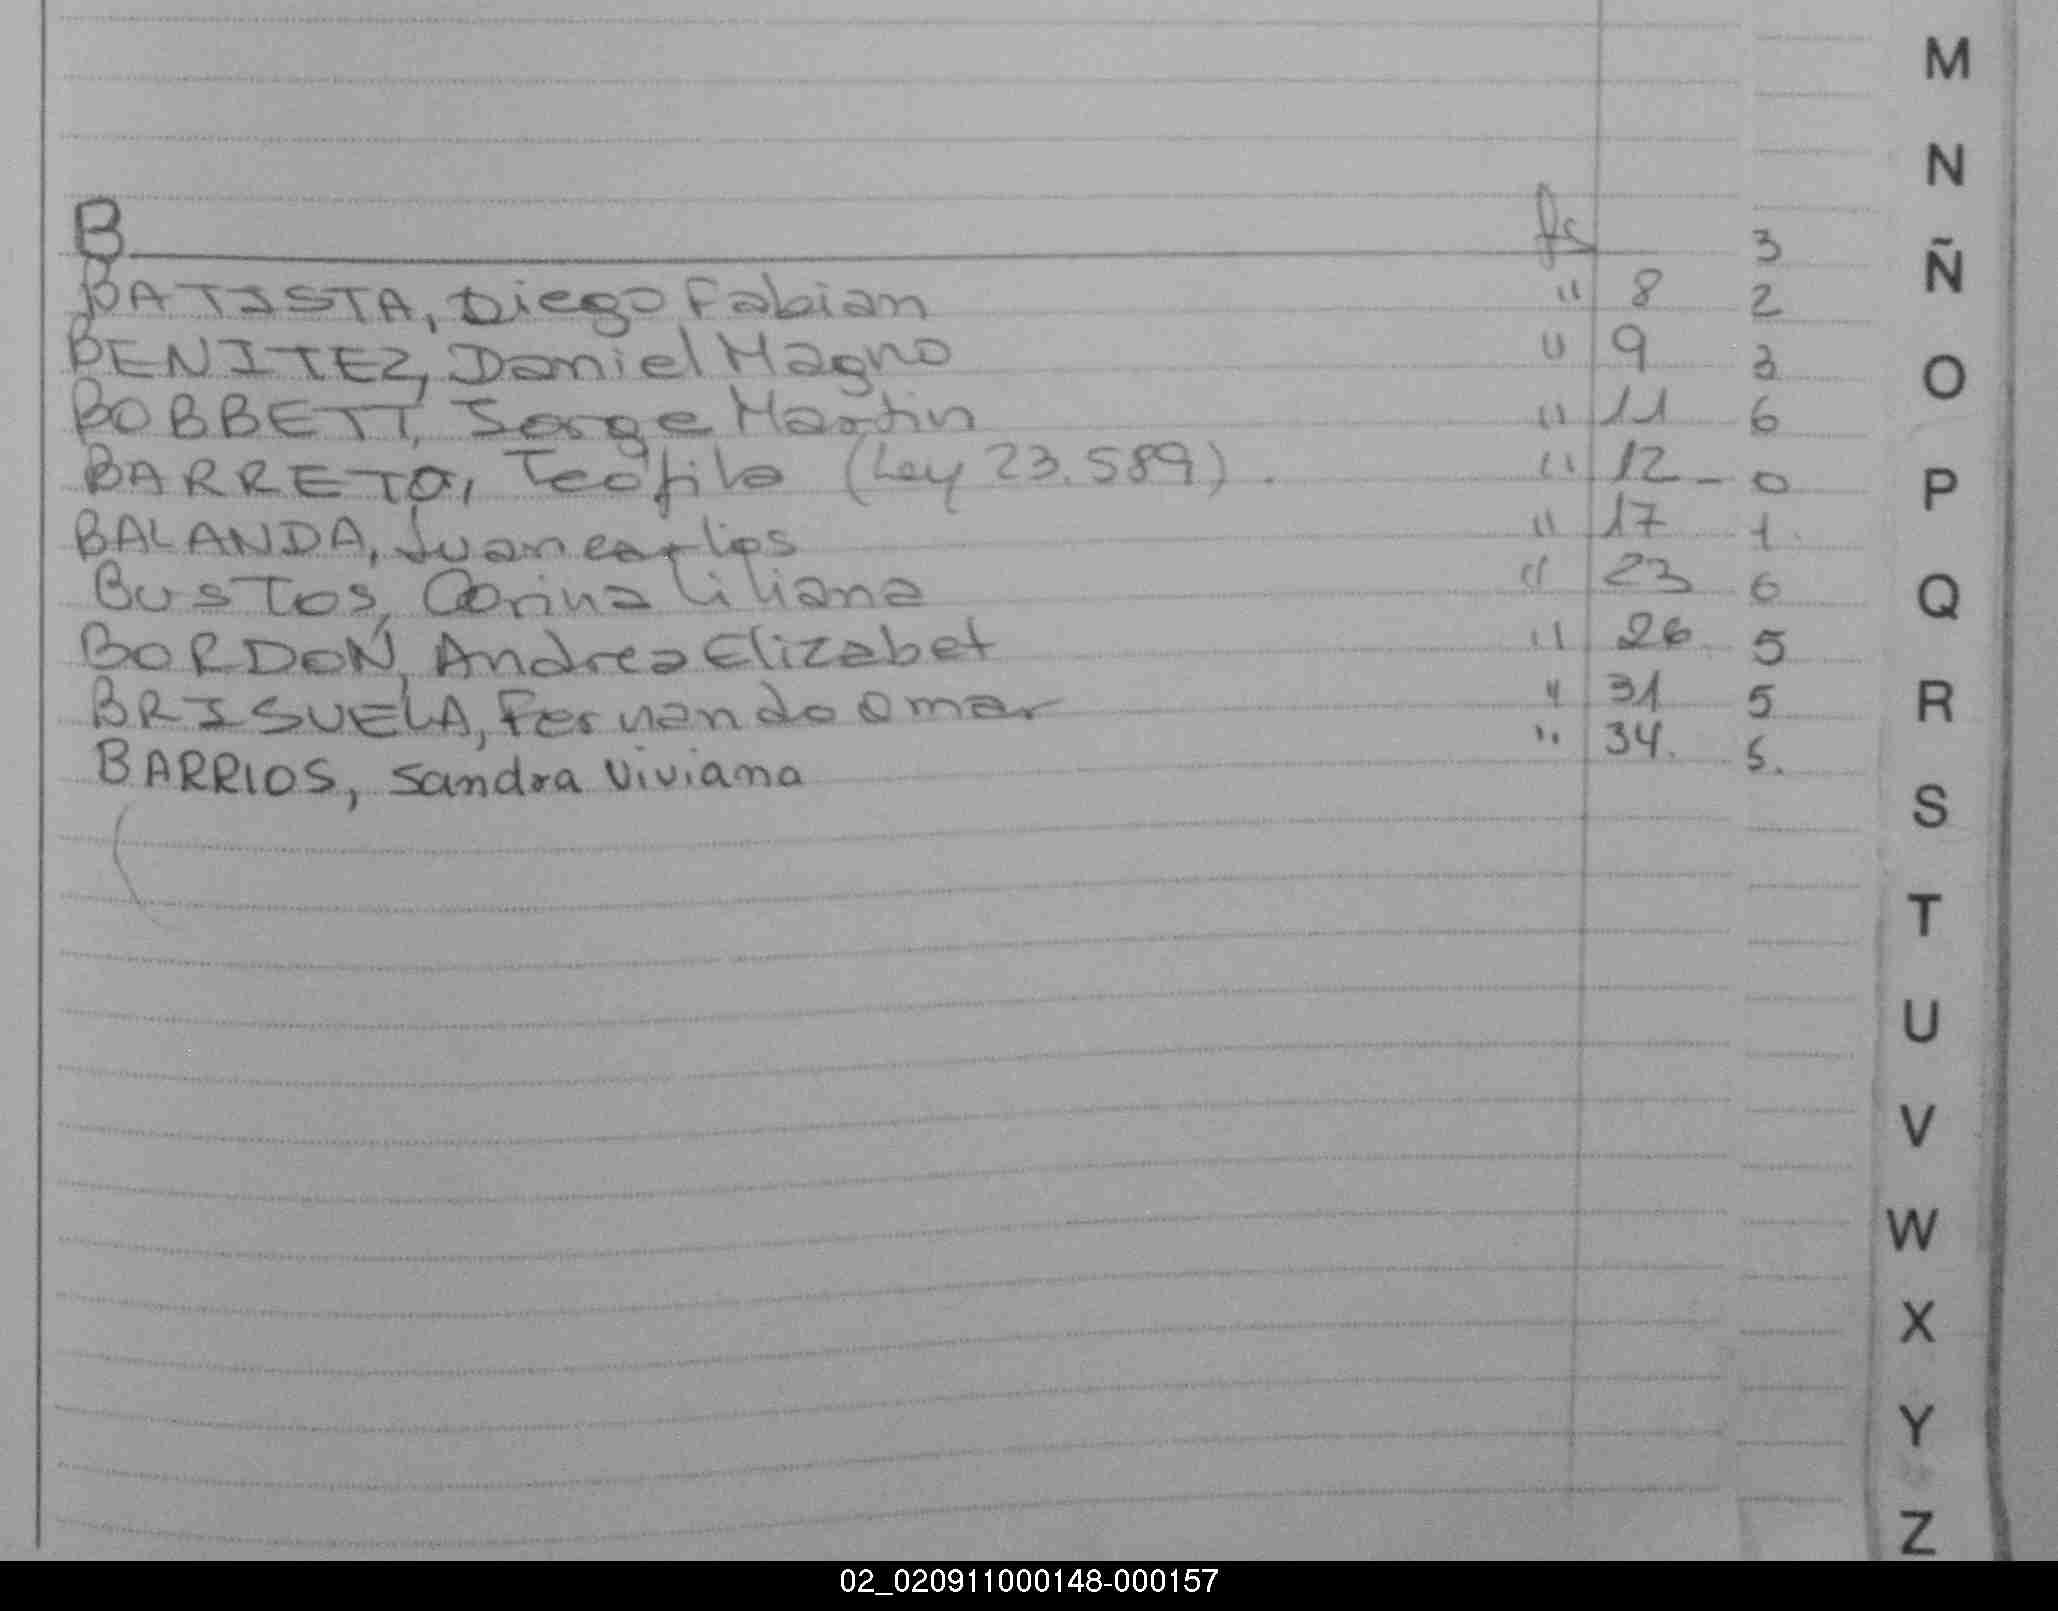 B fs
BATISTA, Diego Fabian " 8
BENITEZ, Daniel Magno " 9
BOBBETT, Jorge Martin " 11
BARRETO, Teófilo (Ley 23.589). " 12 -
BALANDA, Juan carlos " 17
BUSTOS, Corina Liliana " 23
BORDON, Andrea Elizabet " 26
BRISUELA, Fernando Omar " 31
BARRIOS, Sandra Viviana " 34.
3
2
3
6
0
1
6
5
5
5.
M
N
Ñ
O
P
Q
R
S
T
U
V
W
X
Y
Z
02_020911000148-000157